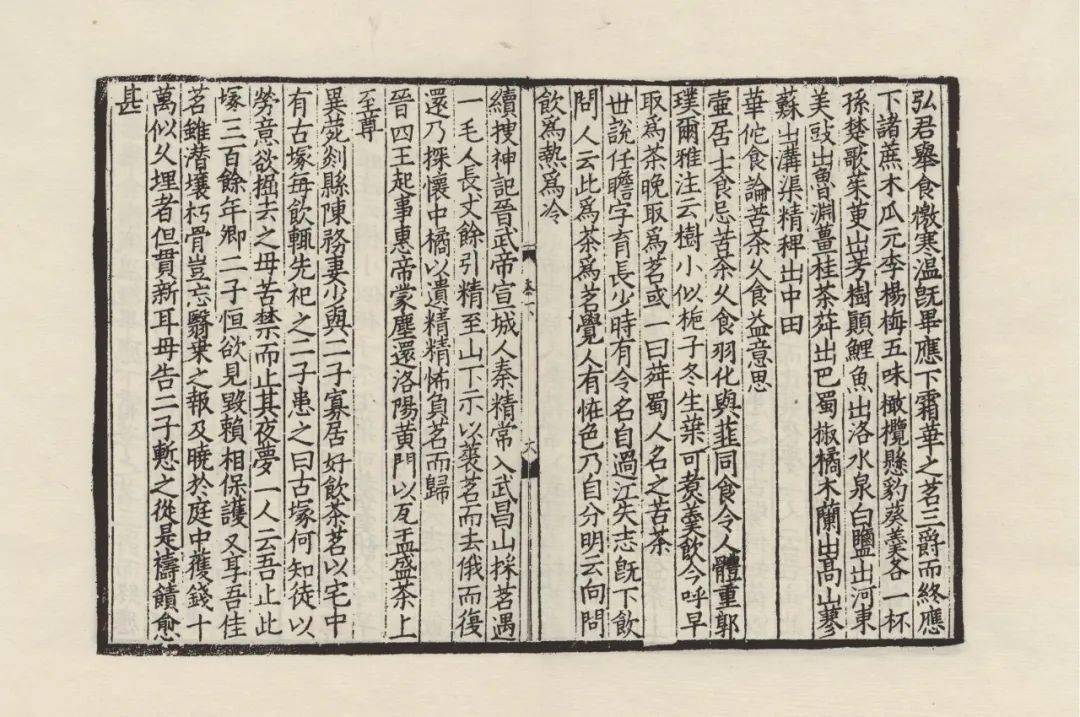 弘君舉食檄寒温旣畢應下霜華之茗三爵而終應
下諸蔗木瓜元李楊梅五味橄欖懸豹葵羹各一杯
孫楚歌茱茰出芳樹顛鯉魚出洛水泉白鹽出河東
美豉出魯淵薑桂茶荈出巴蜀椒橘木蘭出高山蓼
蘇出溝渠精稗出中田
華佗食論苦茶久食益意思
壷居士食忌苦茶久食羽化與韮同食令人體重郭
璞爾雅注云樹小似梔子冬生葉可煑羹飲今呼早
取爲茶晚取爲茗或一曰荈蜀人名之苦茶
世說任瞻字育長少時有令名自過江失志旣下飲
問人云此爲茶爲茗覺人有恠色乃自分明云向問
飲爲熱爲冷
續搜神記晉武帝宣城人秦精常入武昌山採茗遇
一毛人長丈餘引精至山下示以藂茗而去俄而復
還乃探懷中橘以遺精精怖負茗而歸
晉四王起事惠帝蒙塵還洛陽黃門以瓦盂盛茶上
至尊
異苑剡縣陳務妻少與二子寡居好飲茶茗以宅中
有古塚每飲輒先祀之二子患之曰古塚何知徒以
勞意欲掘去之母苦禁而止其夜夢一人云吾止此
塚三百餘年卿二子恒欲見毀賴相保護又享吾佳
茗雖潛壤朽骨豈忘翳桑之報及曉於庭中獲錢十
萬似久埋者但貫新耳母告二子慙之從是禱饋愈
甚